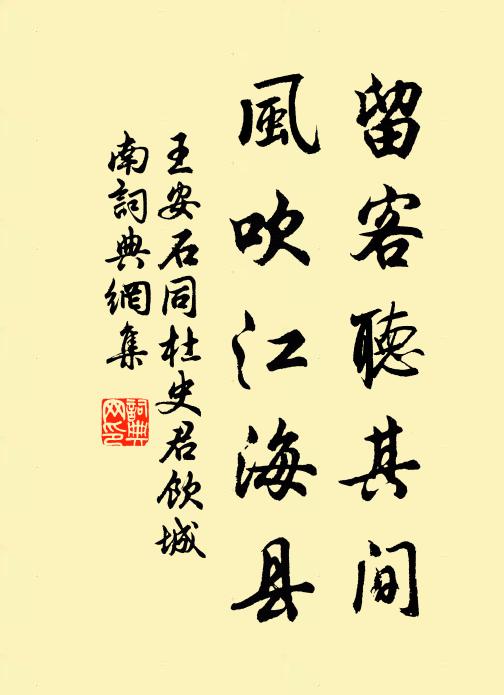 留客聽其间
風吹江海县
王安石同杜史君飲城
南詞典網集
詞典
网印